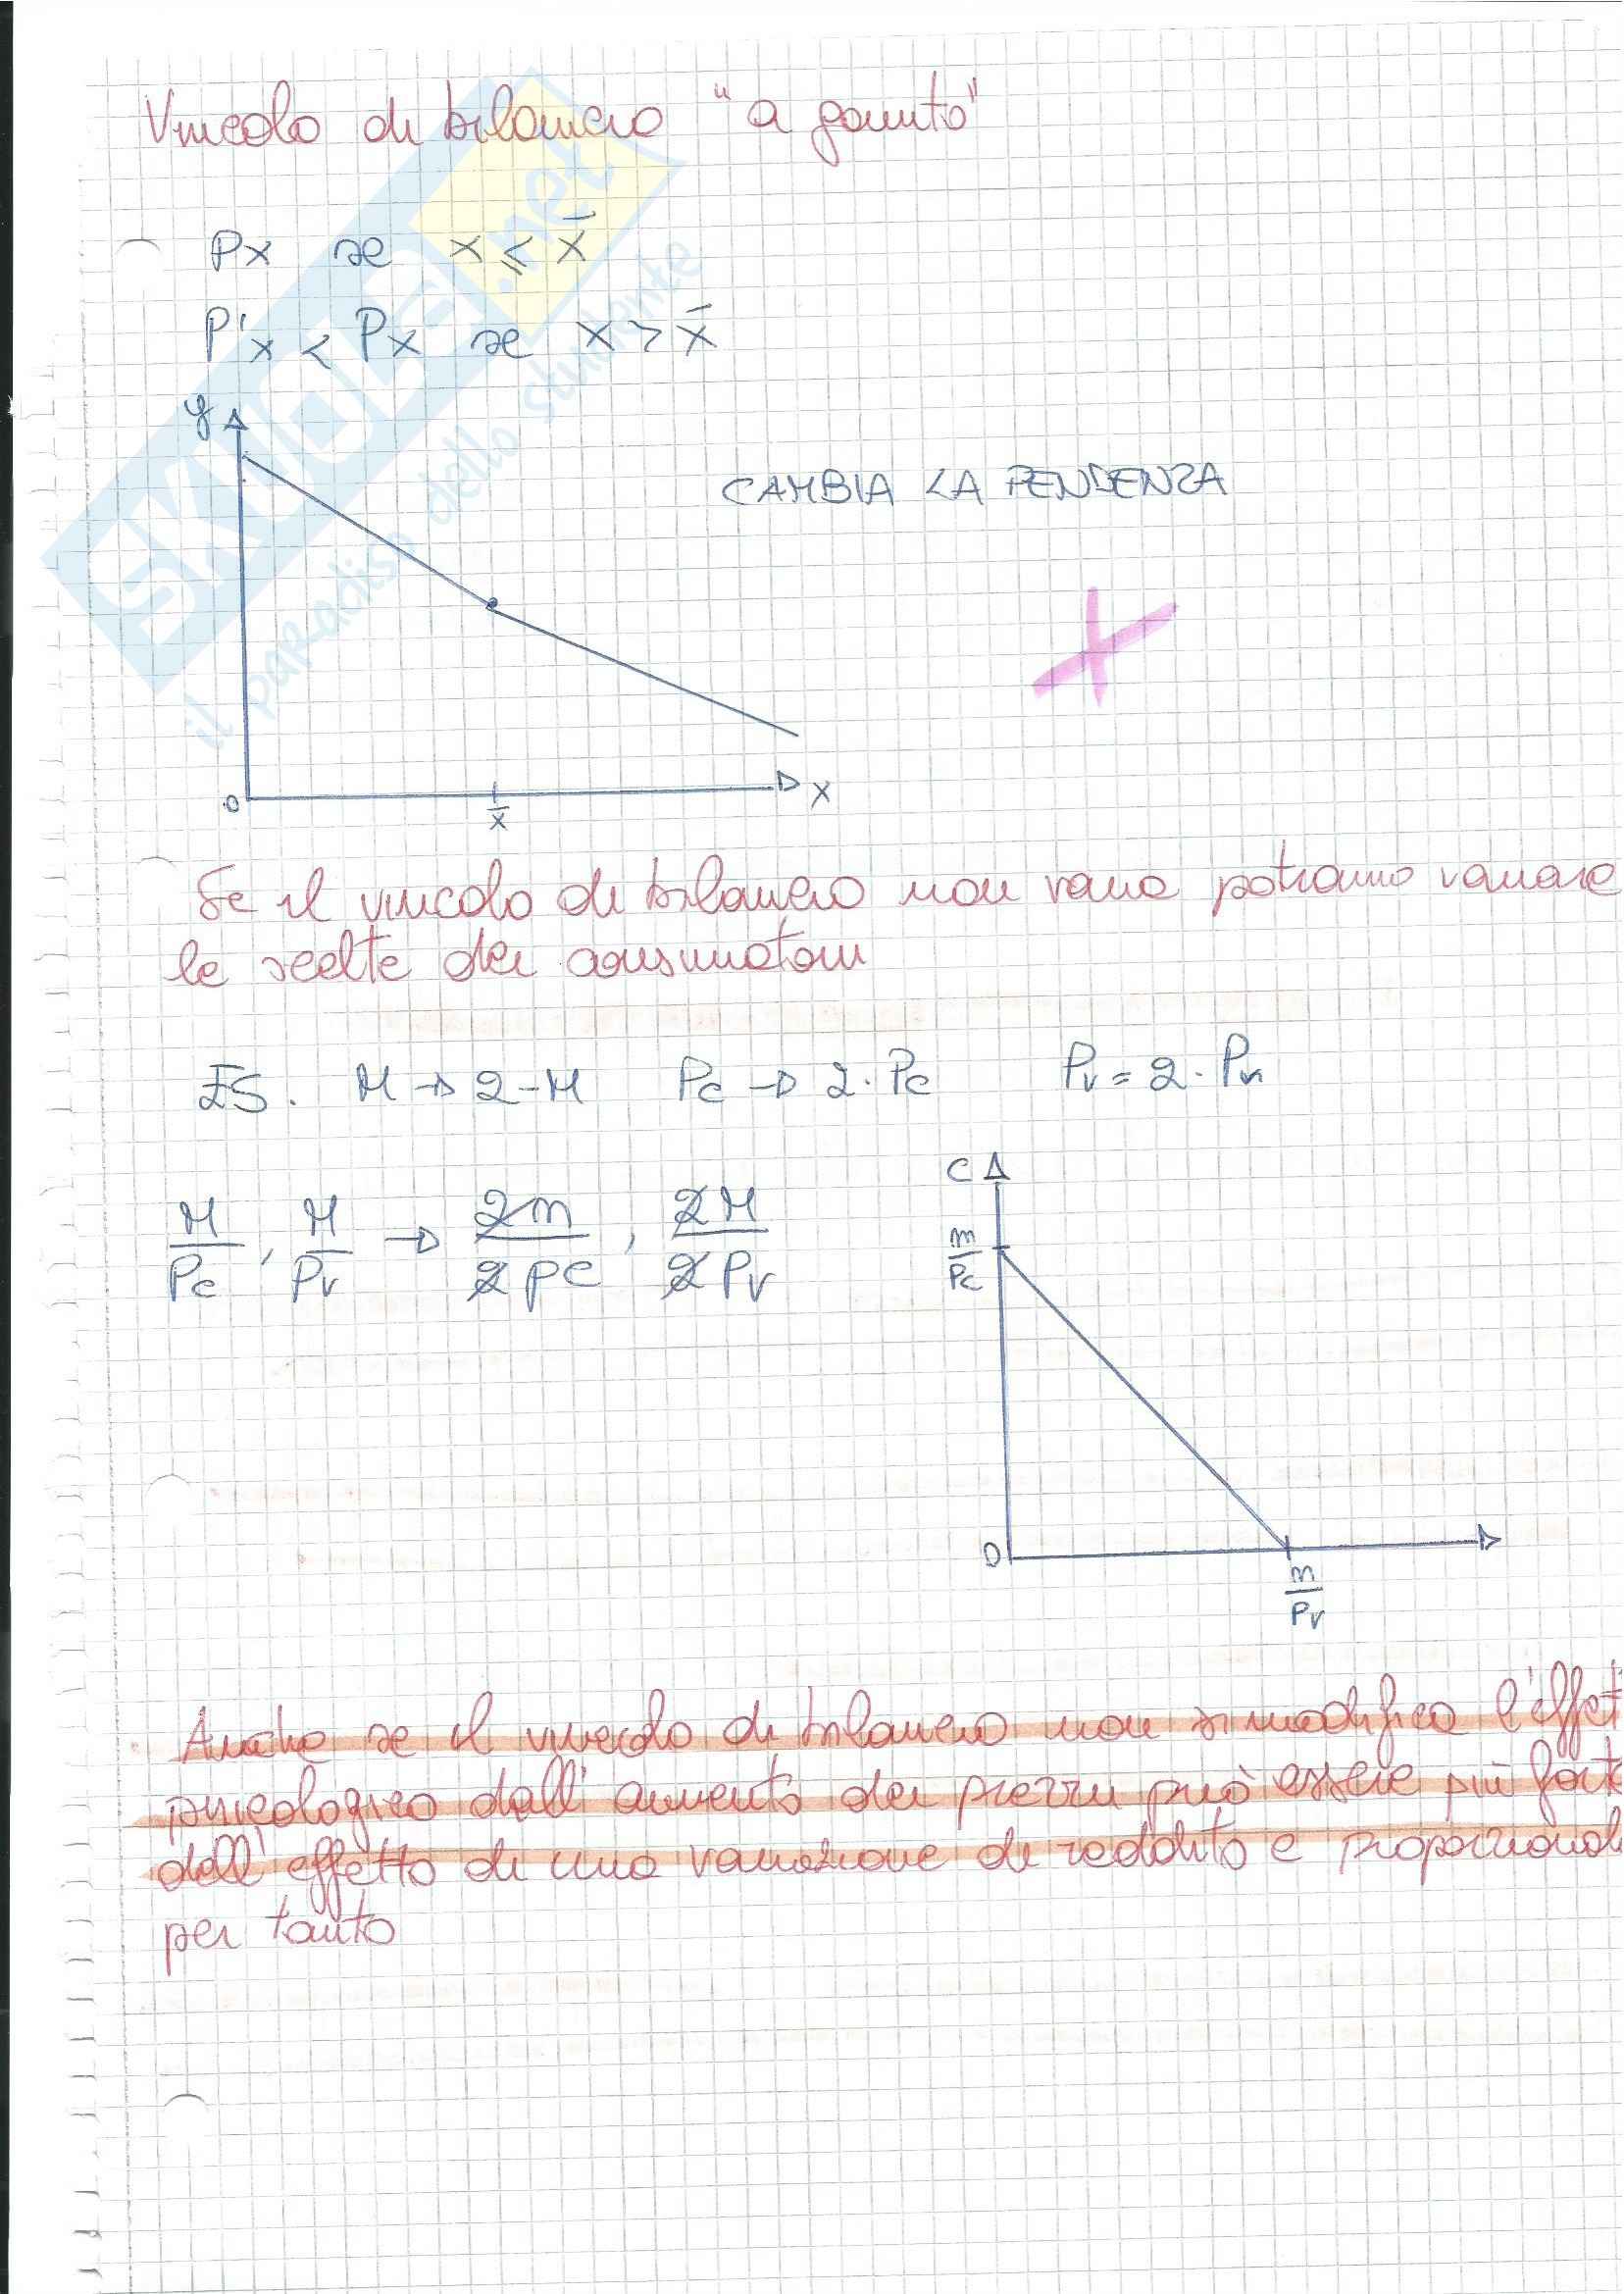 Vincolo di bilancio "a gomito"
Px se x ≤ x̄
P'x < Px se x > x̄
y
CAMBIA LA PENDENZA
0 x̄ x
Se il vincolo di bilancio non varia potranno variare
le scelte dei consumatori
ES. M → 2-M Pc → 2·Pc Pv = 2·Pv
M/Pc , M/Pv → 2m/2pc , 2M/2Pv
C
m/Pc
0
m/Pv
Anche se il vincolo di bilancio non si modifica l'effet
psicologico dall'aumento dei prezzi può essere più forte
dell'effetto di una variazione di reddito e proporzional
per tanto
SKUOLA.net
il paradiso dello studente